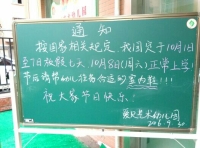 通知
按国家相关规定 我园定于10月1日
至7日放假七天 10月8日(周六)正常上学!
节后请带幼儿准备合适的室内鞋!!!
祝大家节日快乐!
艺术幼儿园
2016.9.30